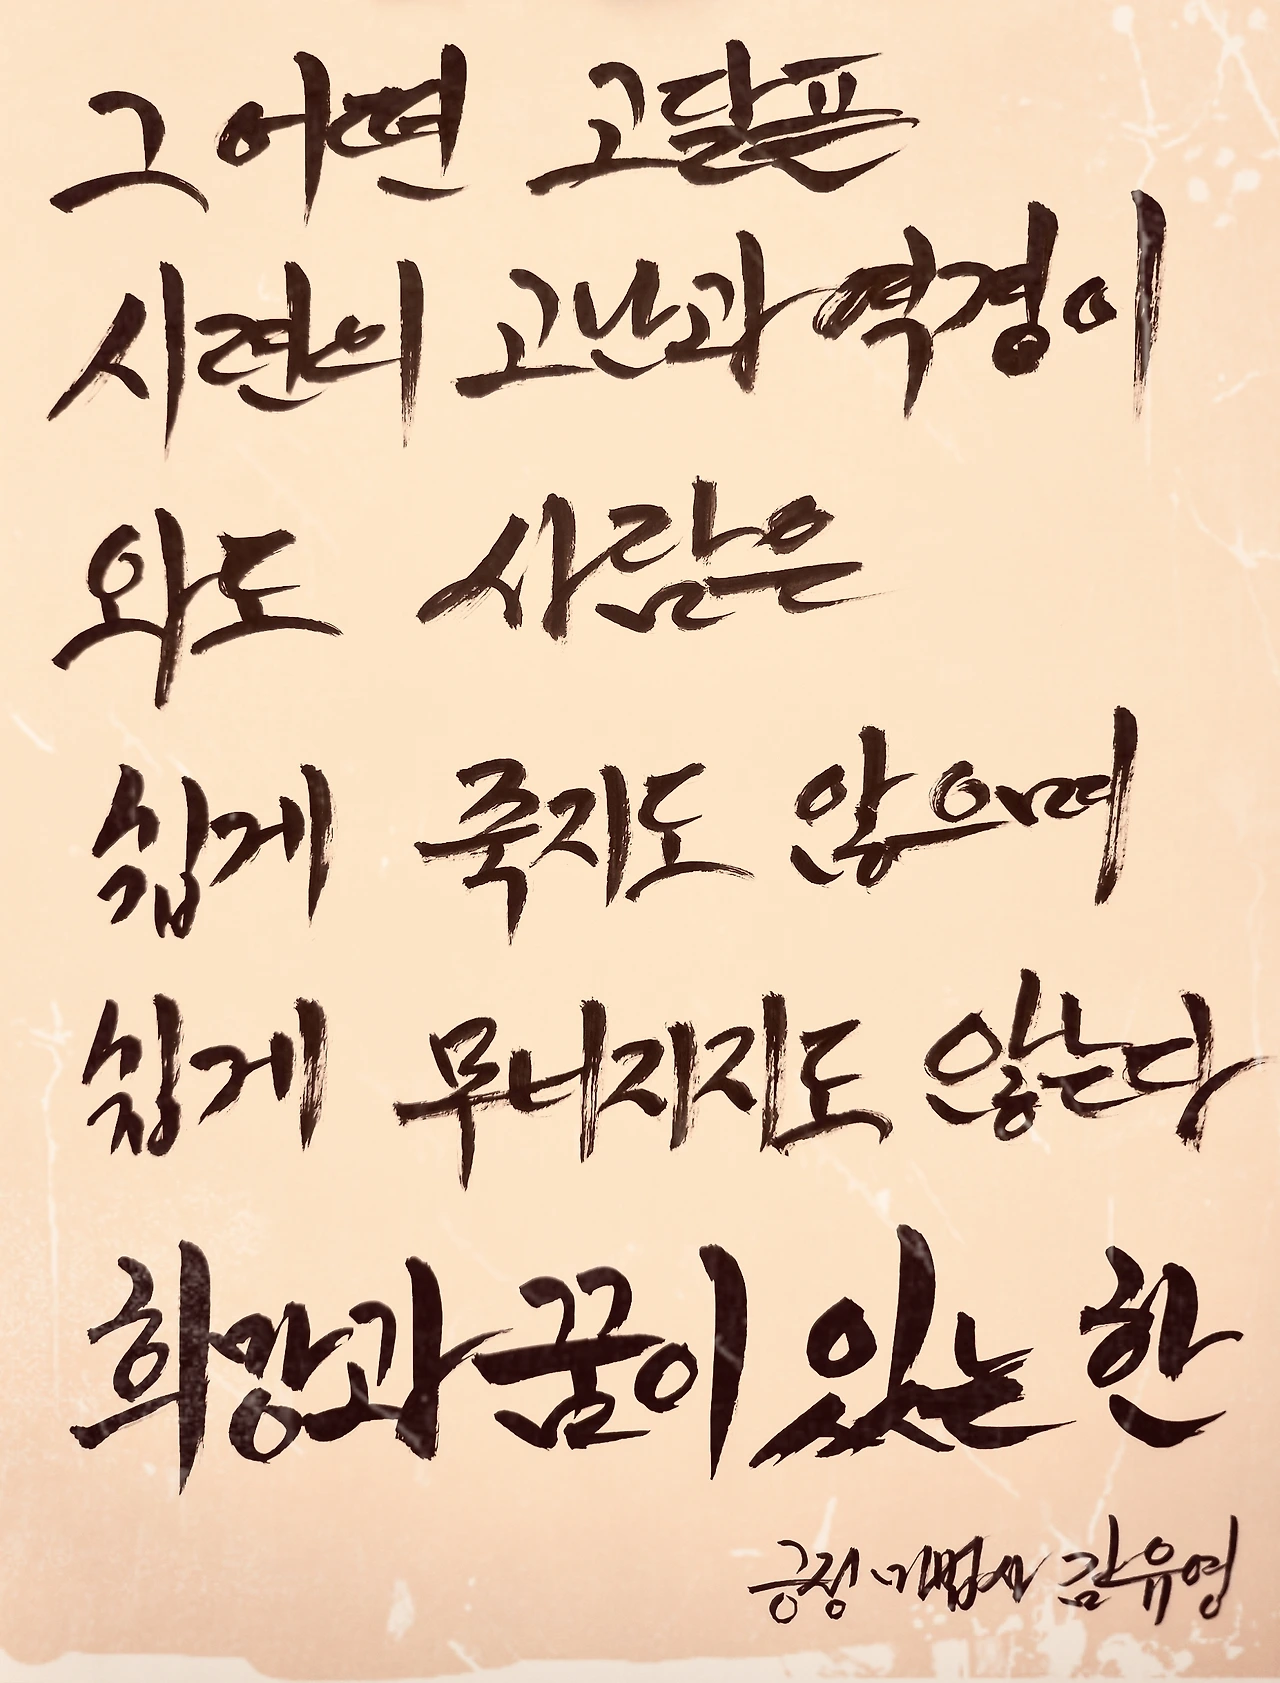 그 어떤 고달픈
시련의 고난과 역경이
와도 사람은
쉽게 죽지도 않으며
쉽게 무너지지도 않는다
희망과 꿈이 있는 한
긍정 마법사 김유영